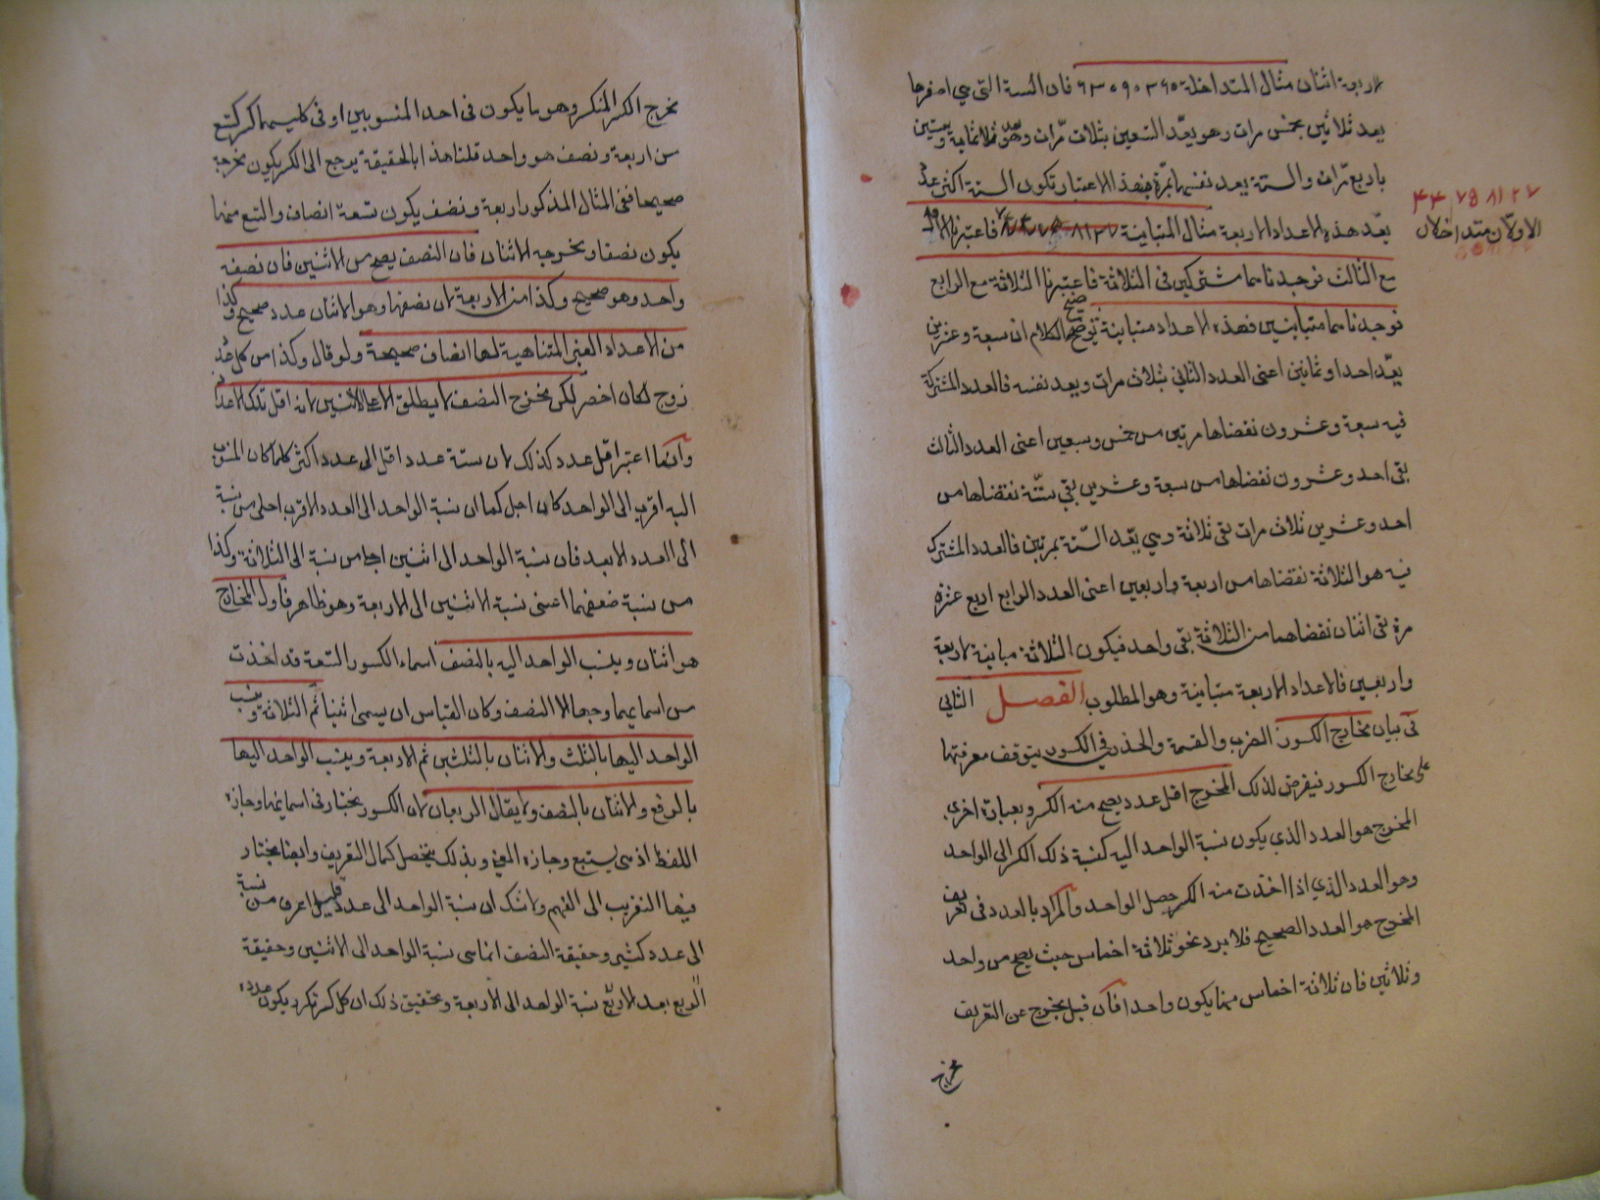 لاربعة اثنان مثال المتداخلة ٦ ٣٠ ٩٠ ٣٦٠ فان الستة التي هي اصغرها
يعد ثلاثين بخمس مرات وهو يعدّ التسعين بثلاث مرّات وهو يعد ثلاثمائة وستين
باربع مرّات والستة يعد نفسها بمرّة فبهذا الاعتبار تكون الستة اكثر عدد
يعدّ هذه الاعداد الاربعة مثال المتباينة فاعتبرنا الاول
٢٧ ٨١ ٧٥ ٤٤
الاولان متداخلان
مع الثالث فوجدناهما مشتركين في الثلاثة فاعتبرنا الثلاثة مع الرابع
فوجدناهما متباينين فهذه الاعداد متباينة توضيح الكلام ان سبعة وعشرين
يعدّ احدا وثمانين اعنى العدد الثاني بثلاث مرات ويعد نفسه فالعدد المشترك
فيه سبعة وعشرون نقصناها مرتين من خمس وسبعين اعنى العدد الثالث
بقى احد وعشرون نقصناها من سبعة وعشرين بقي ستّة نقصناها من
احد وعشرين ثلاث مرات بقى ثلاثة وهي يعّد الستّة بمرتين فالعدد المشترك
فيه هو الثلاثة نقصناها من اربعة واربعين اعنى العدد الرابع اربع عشرة
مرة بقى اثنان نقصناهما من الثلاثة بقى واحد فيكون الثلاثة مباينة لاربعة
واربعين فالاعداد الاربعة متباينة وهو المطلوب الفصل الثاني
في بيان مخارج الكسور الضرب والقسمة والجذر في الكسور يتوقف معرفتها
على مخارج الكسور فيفرض لذلك المخرج اقل عدد يصح منه الكسر وبعبارة اخرى
المخرج هو العدد الذي يكون نسبة الواحد اليه كنسبة ذلك الكسر الى الواحد
وهو العدد الذي اذا اخذت منه الكسر حصل الواحد والمراد بالعدد في تعريف
المخرج هو العدد الصحيح فلا يرد نحو ثلاثة اخماس حيث يصح من واحد
وثلاثين فان ثلاثة اخماس منها يكون واحدا فان قيل يخرج عن التعريف
مخرج
مخرج الكسر المنكسر وهو ما يكون في احد المنسوبين او في كليهما كسر كتسع
من اربعة ونصف هو واحد قلنا هذا بالحقيقة يرجع الى الكسر يكون مخرجه
صحيحا ففي المثال المذكور اربعة ونصف يكون تسعة انصاف والتسع منها
يكون نصفا ومخرجه الاثنان فان النصف يصح من الاثنين فان نصفه
واحد وهو صحيح وكذا من الاربعة لان نصفها وهو الاثنان عدد صحيح وكذا
من الاعداد الغير المتناهية لها انصاف صحيحة ولو قال وكذا من كل عدد
زوج لكان اخصر لكن مخرج النصف لا يطلق الا على الاثنين لانه اقل تلك الاعداد
وانّما اعتبر اقل عدد كذلك لان ستة عدد اقل الى عدد اكثر كلما كان المنسوب
اليه اقرب الى الواحد كان اجلى كما ان نسبة الواحد الى العدد الاقرب اجلى من نسبة
الى العدد الابعد فان نسبة الواحد الى اثنين اجلى من نسبة الى الثلاثة وكذا
من نسبة ضعفهما اعنى نسبة الاثنين الى الاربعة وهو ظاهر فاول المخارج
هو اثنان وينسب الواحد اليه بالنصف اسماء الكسور التسعة قد اخذت
من اسماء الا النصف وكان القياس ان يسمى اثنيا ثم الثلاثة وينسب
الواحد اليها بالثلث والاثنان بالثلثين ثم الاربعة وينسب الواحد اليها
بالربع والاثنان بالنصف ولا يقال الربعان لان الكسور يختار في اسمائها وجازة
اللفظ اذ هي يستتبع وجازة المعنى وبذلك يتحصل كمال التعريف وايضا يختار
فيها التقريب الى الفهم ولا شك ان نسبة الواحد الى عدد قليل اعرف من نسبة
الى عدد كثير وحقيقة النصف انما هي نسبة الواحد الى الاثنين وحقيقة
الربع بعد نسبة الواحد الى الاربعة وتحقيق ذلك ان كل كسر يكون عدده